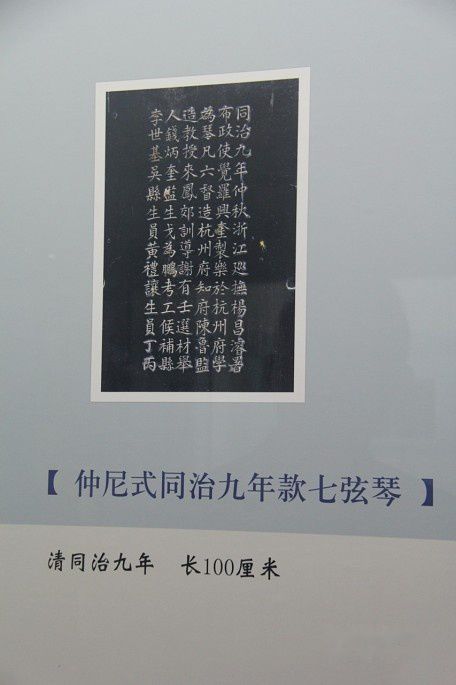 同治九年仲秋浙江巡撫楊昌濬署
布政使覺羅興奎製樂於杭州府學
為琴凡六督造杭州府知府陳魯監
造教授來鳳郊訓導謝有壬選材舉
人錢炳奎監生戈為鵬考工候補縣
李世基吳縣生員黃禮讓生員丁丙
【仲尼式同治九年款七弦琴】
清同治九年 长100厘米